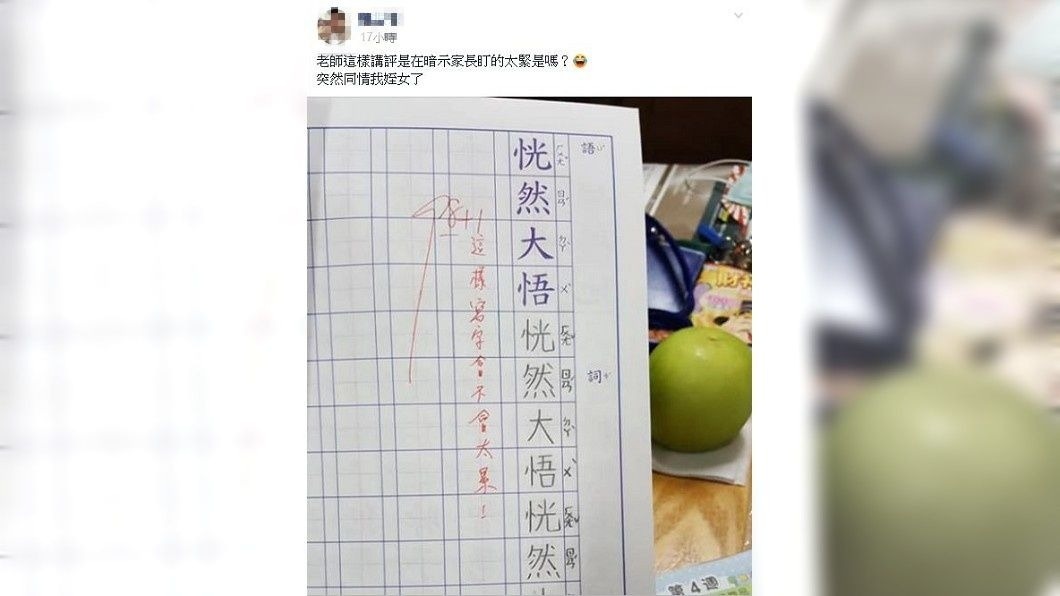 17小時
老師這樣講評是在暗示家長盯的太緊是嗎？😂
突然同情我姪女了
語
詞
恍然大悟恍然大悟恍然
ㄏㄨㄤˇ ㄖㄢˊ ㄉㄚˋ ㄨˋ ㄏㄨㄤˇ ㄖㄢˊ ㄉㄚˋ ㄨˋ ㄏㄨㄤˇ ㄖㄢˊ
這樣寫字會不會太累！
第4週